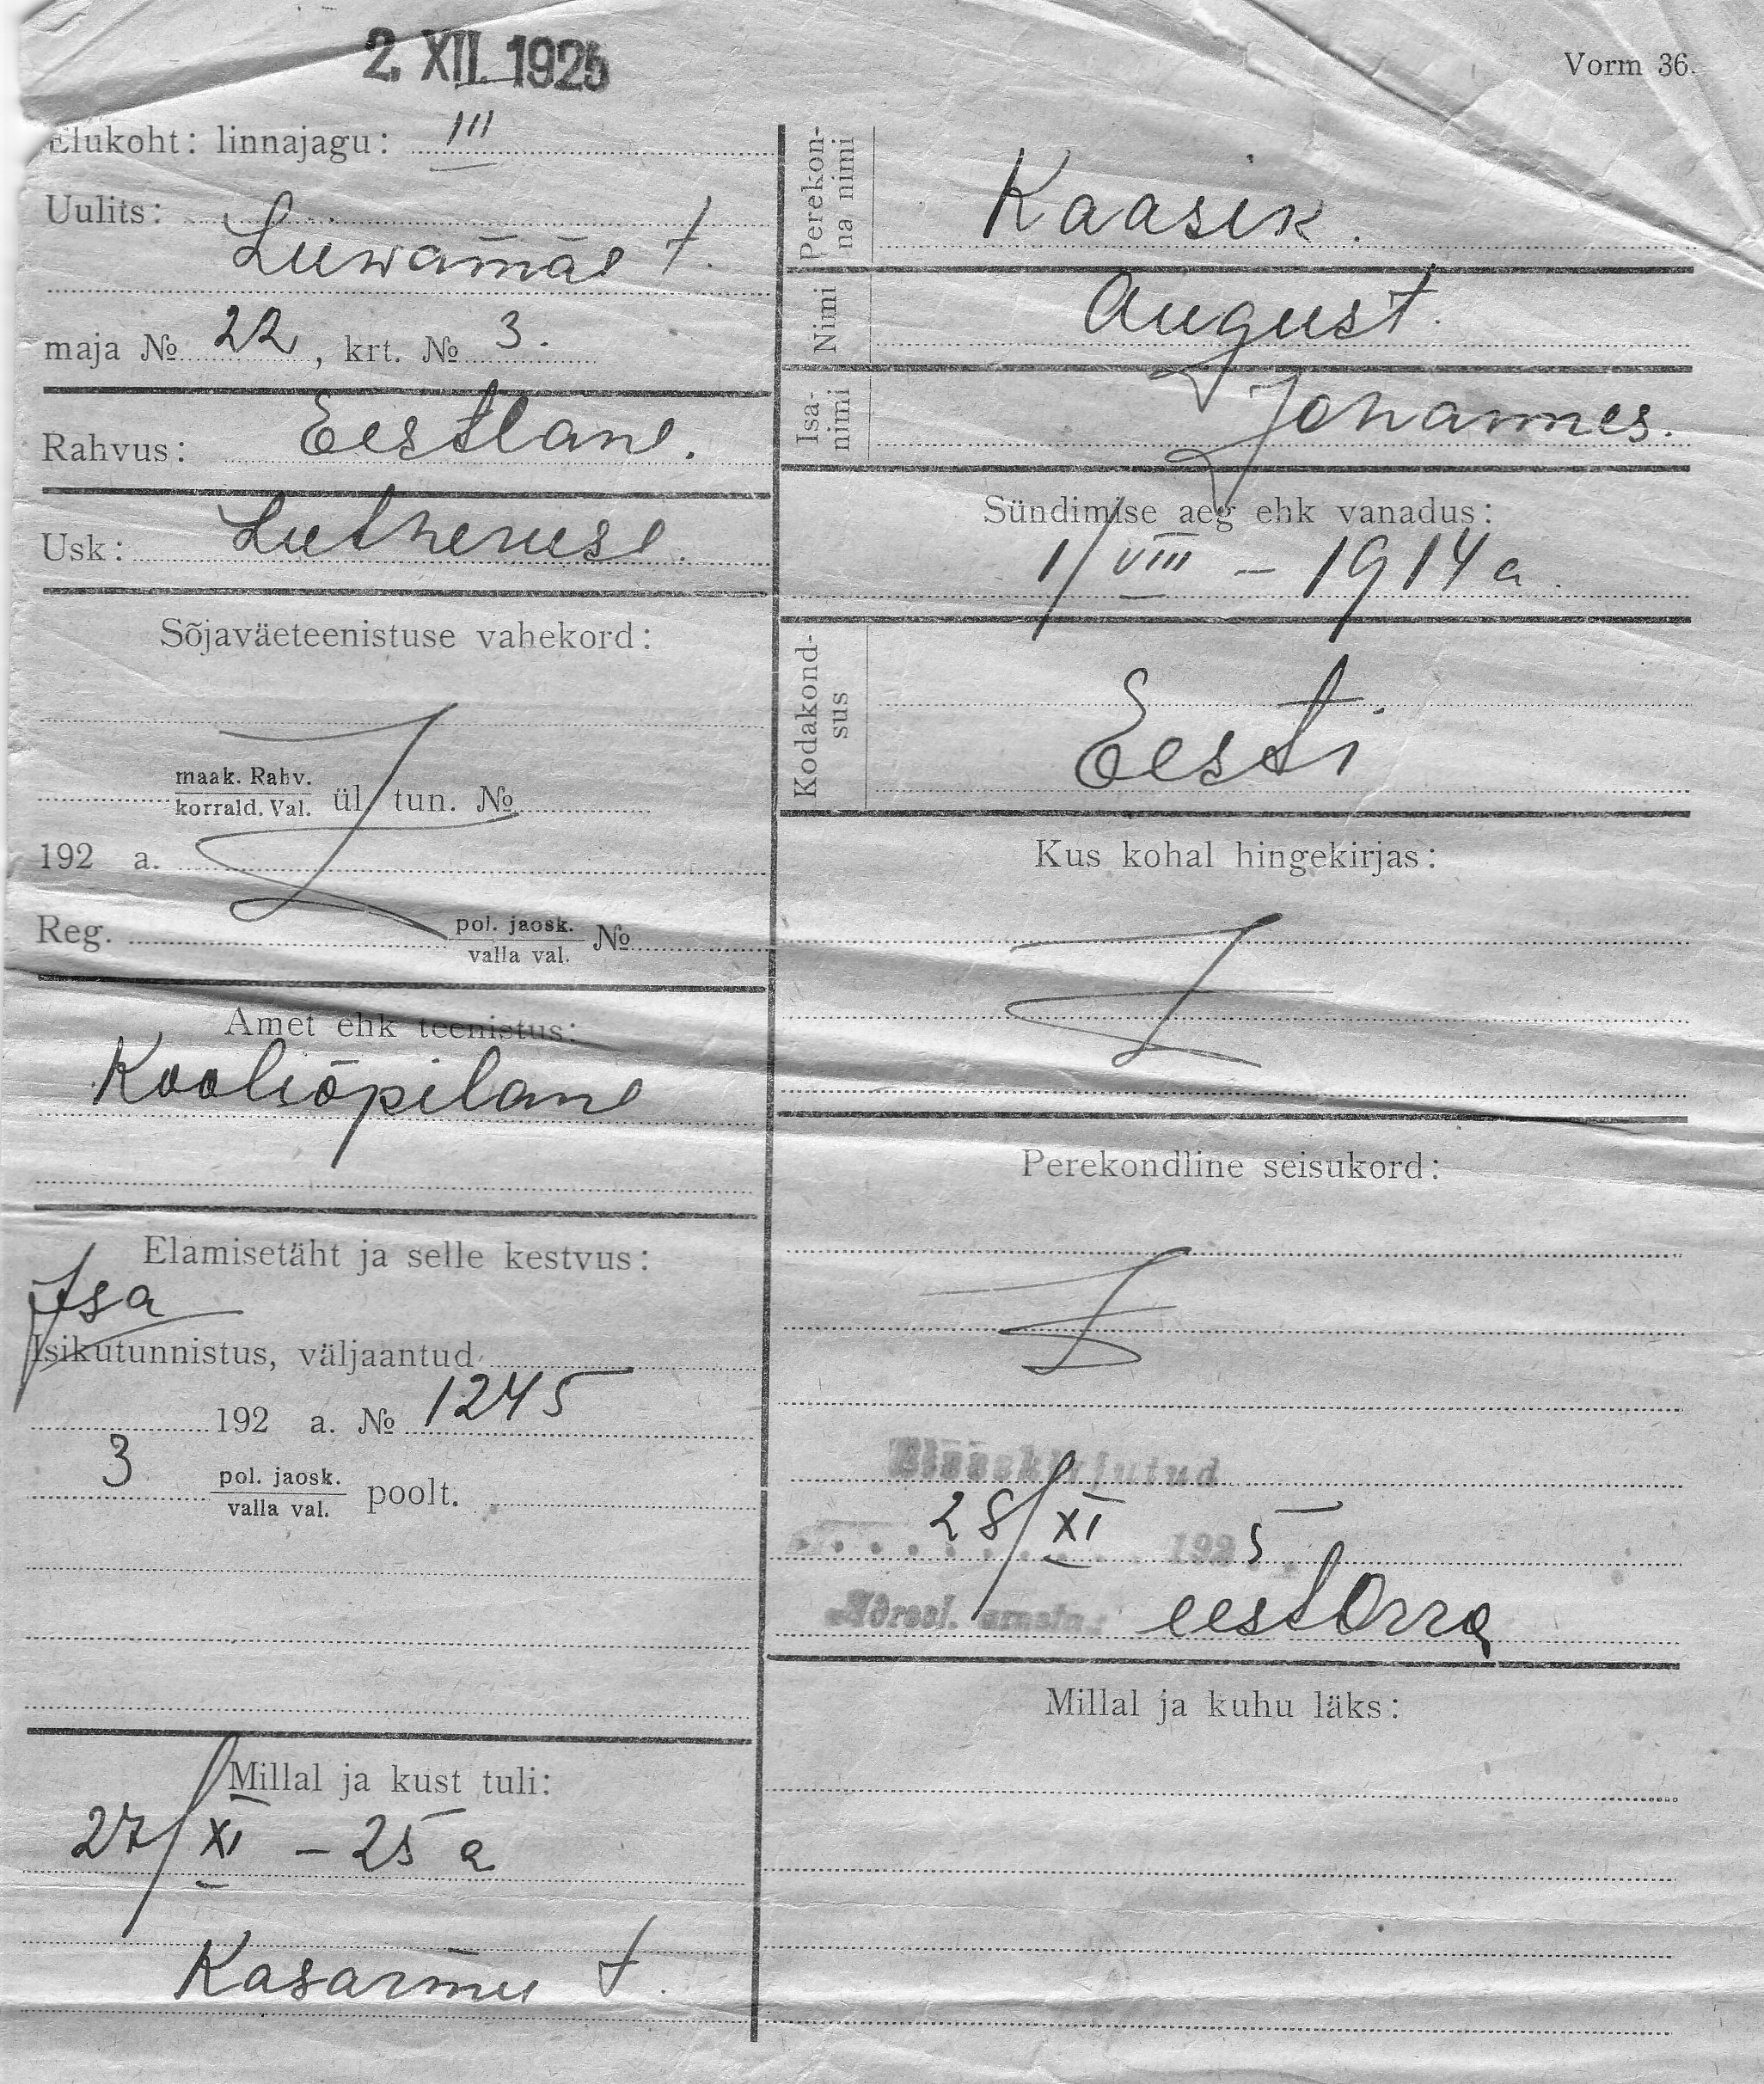 2. XII. 1925
Vorm 36.
Elukoht: linnajagu: III
Uulits:
Luwamäe t.
maja № 22, krt. № 3.
Rahvus: Eestlane.
Usk: Lutheruse.
Sõjaväeteenistuse vahekord:
maak. Rahv.
korrald. Val. ül. tun. №
192 a.
Reg. pol. jaosk.
valla val. №
Amet ehk teenistus:
Kooliõpilane
Elamisetäht ja selle kestvus:
Isa
Isikutunnistus, väljaantud
192 a. № 1245
3 pol. jaosk.
valla val. poolt.
Millal ja kust tuli:
27/XI – 25 a
Kasarmu t.
Perekon-
na nimi
Kaasik.
Nimi
August.
Isa-
nimi
Johannes.
Sündimise aeg ehk vanadus:
1/VIII – 1914 a.
Kodakond-
sus
Eesti
Kus kohal hingekirjas:
Perekondline seisukord:
Sissekirjutud
28/XI 1925.
eest Orra
Millal ja kuhu läks: